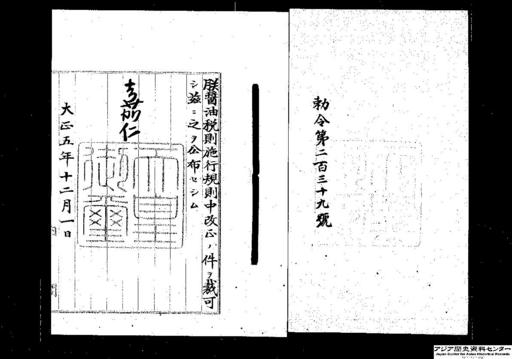 勅令第二百三十九號
朕醤油税則施行規則中改正ノ件ヲ裁可
シ茲ニ之ヲ公布セシム
嘉仁
天皇
御璽
大正五年十二月一日
アジア歴史資料センター
Japan Center for Asian Historical Records